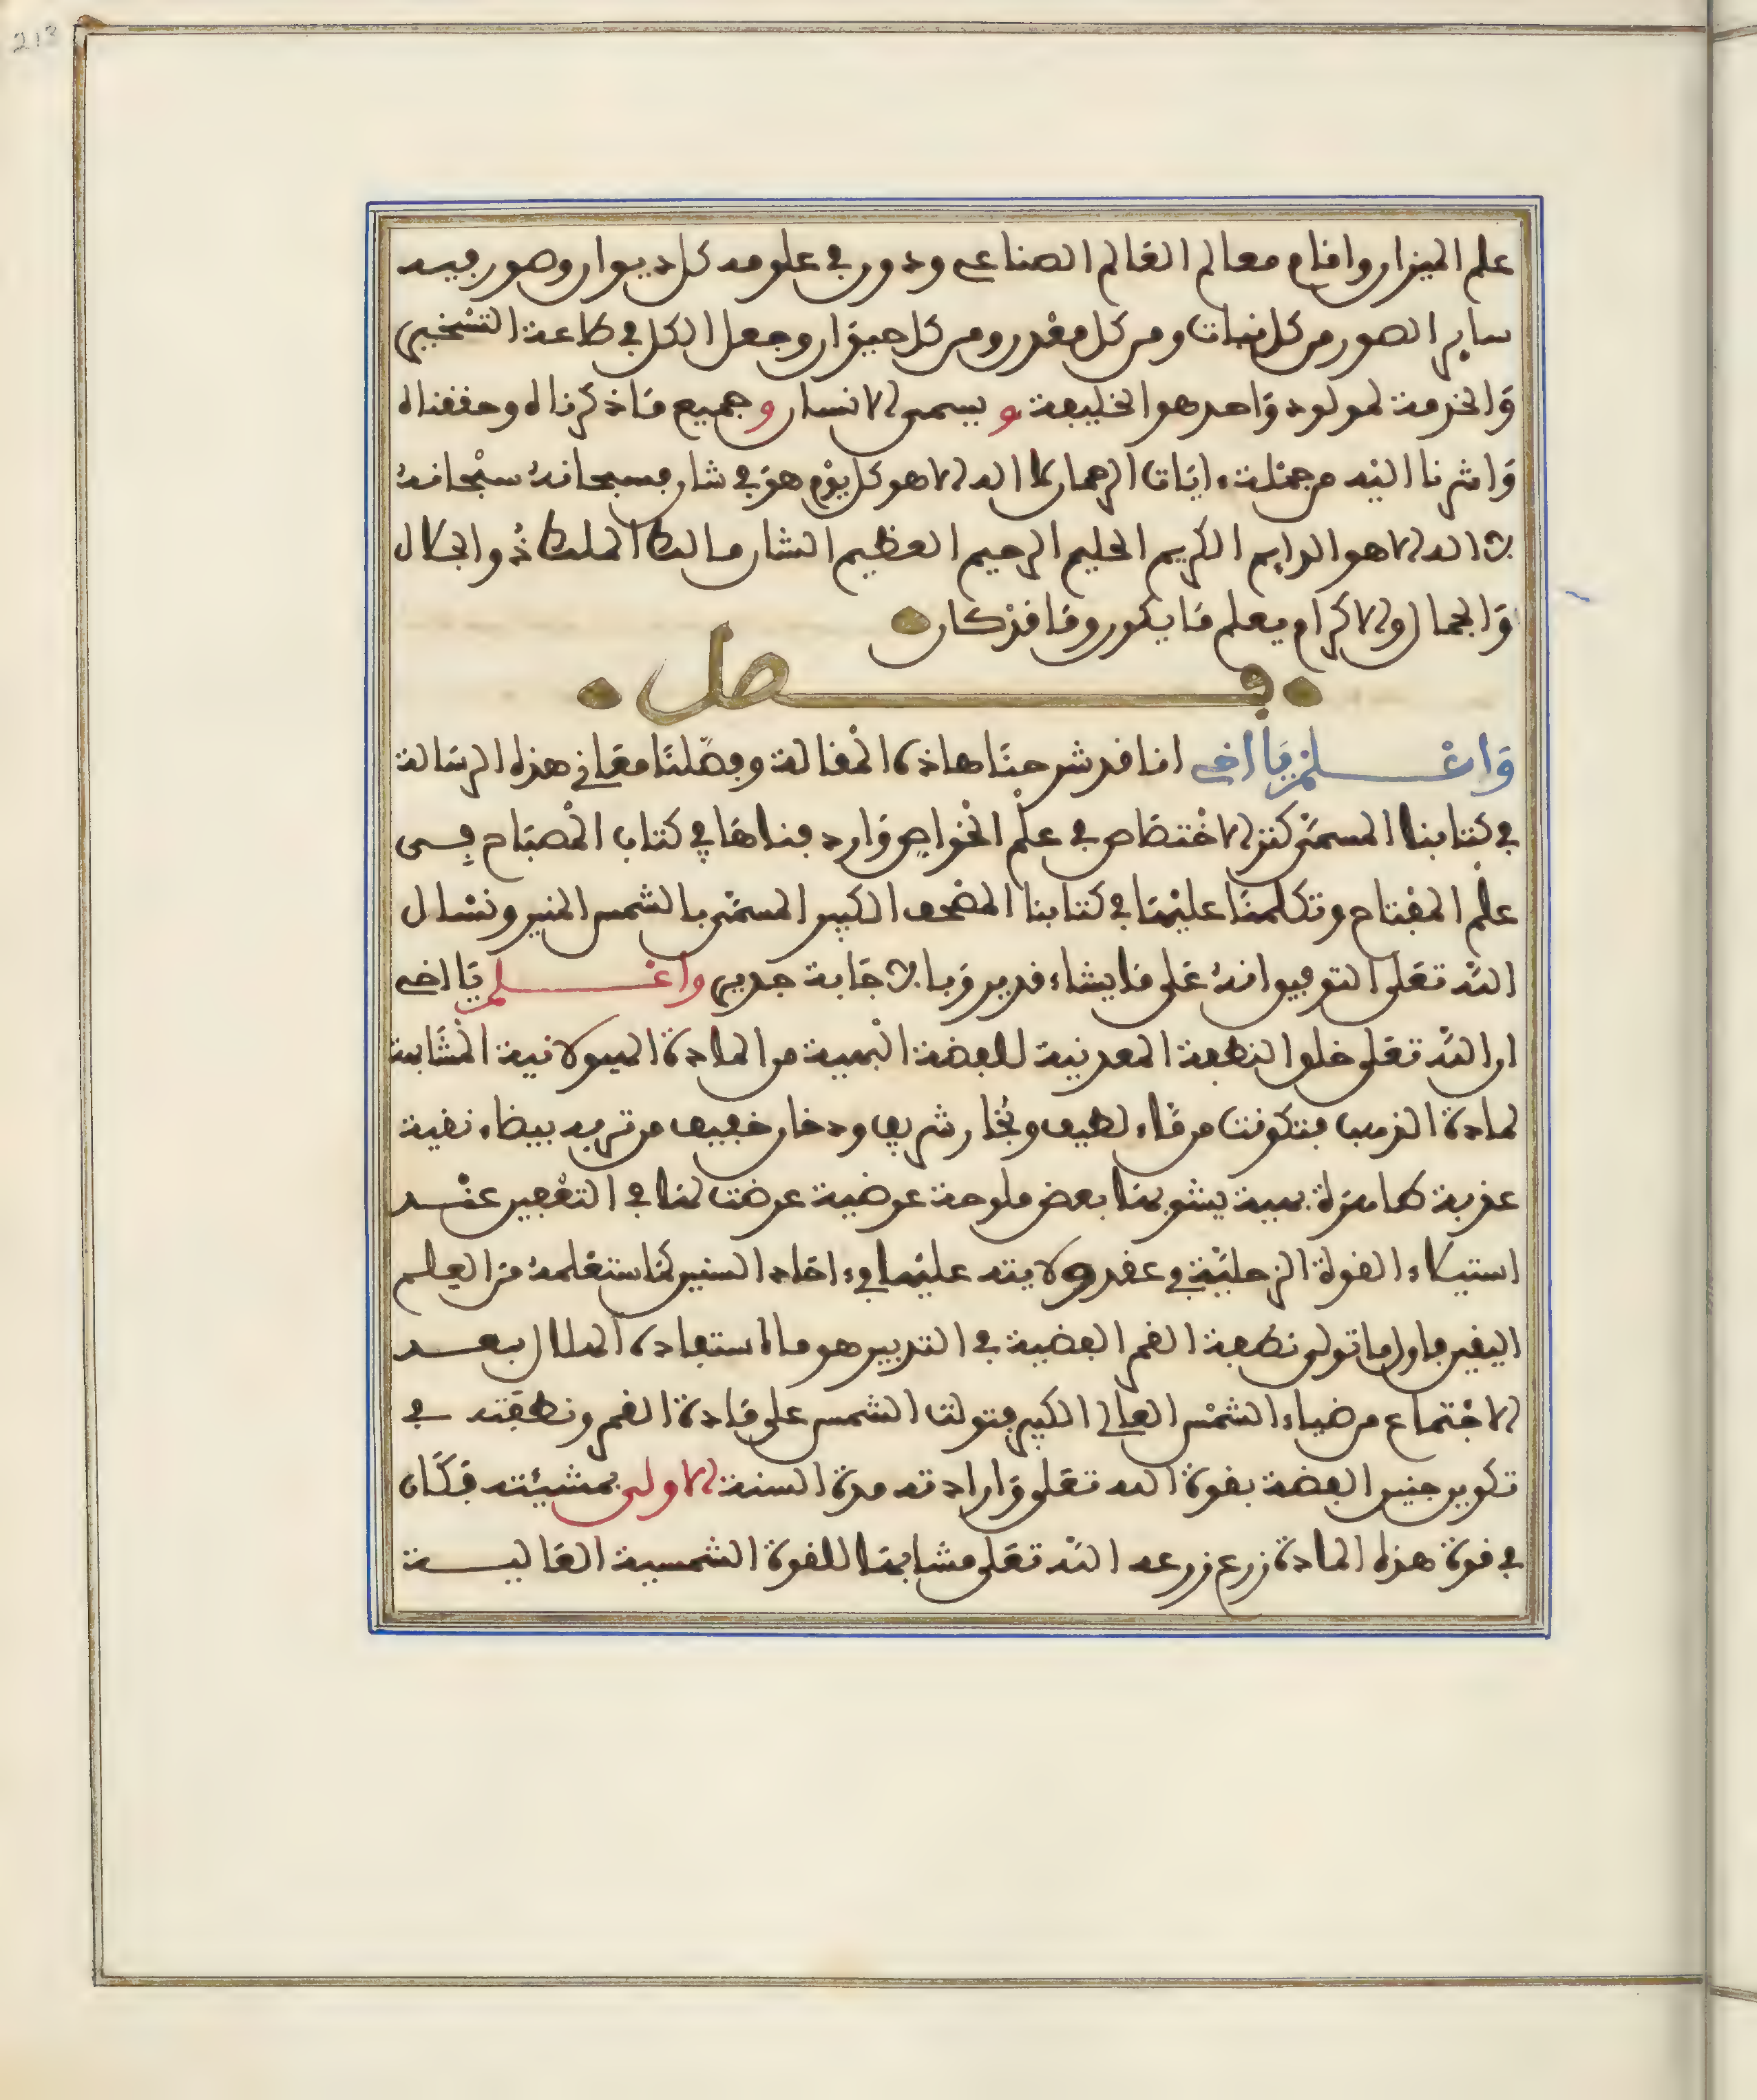 213
علم الميزان واقام معالم العالم الصناعي ودور في علومه كل ديوان وصور فيه
ساير الصور من كل نبات ومن كل معدن ومن كل حيوان وجعل الكل في طاعة التسخير
والخدمة لمولود واحد هو الخليفة ويسمى الانسان وجميع ما ذكرناه وحققناه
واشرنا اليه من جملة ءايات الرحمان لا اله الا هو كل يوم هو في شان فسبحانه سبحانه
لا اله الا هو الدايم الكريم الحليم الرحيم العظيم الشان مالك الملك ذو الجلال
والجمال والاكرام يعلم ما يكون وما قد كان
فصل
واعلم يا اخي اننا قد شرحنا هاذه المقالة وفصلنا معاني هذه الرسالة
في كتابنا المسمى كنز الاختصاص في علم الخواص واردفناها في كتاب المصباح في
علم المفتاح وتكلمنا عليها في كتابنا المصحف الكبير المسمى بالشمس المنير ونسال
الله تعلى التوفيق انه على ما يشاء قدير وبالاجابة جدير واعلم يا اخي
ان الله تعلى خلق النطفة المعدنية للفضة البهية من المادة الهيولانية المشابهة
لمادة الذهب فتكونت من ماء لطيف وبخار شريف ودخان خفيف من تربه بيضاء نقية
عذبة طاهرة بهية يشوبها بعض ملوحة عرضية عرضت لها في التعفين عند
استيلاء القوة الزحلية في عقد ولايته عليها في ءاخاد السنين كما ستعلمه من العلم
اليقين فاول ما تولى نطفة القمر الفضية في التدبير هو ما استفاده الهلال بعد
الاجتماع من ضياء الشمس العالي الكبير فتولت الشمس على مادة القمر ونطفته في
تكوين جنين الفضة بقوة الله تعلى وارادته مدة السنة الاولى بمشيئته فكان
في قوة هذه المادة زرع زرعه الله تعلى مشابها للقوة الشمسية العالية